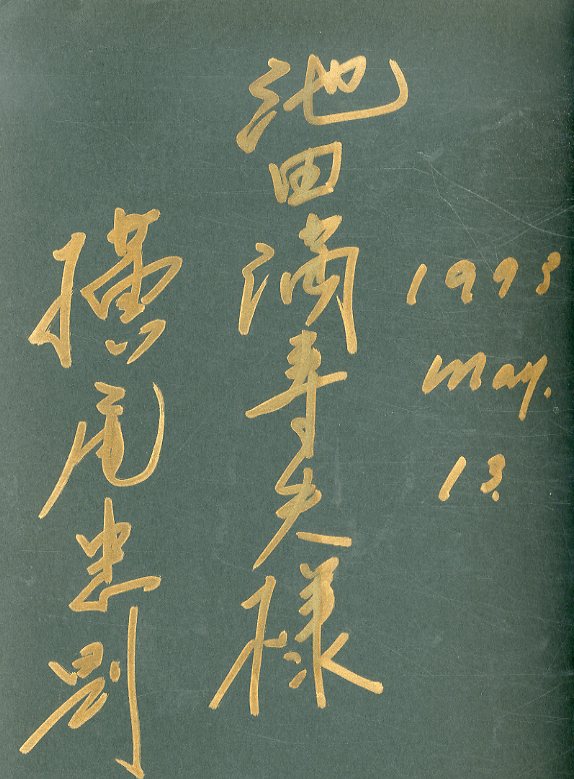 1993
May.
13.
池田満寿夫様
横尾忠則